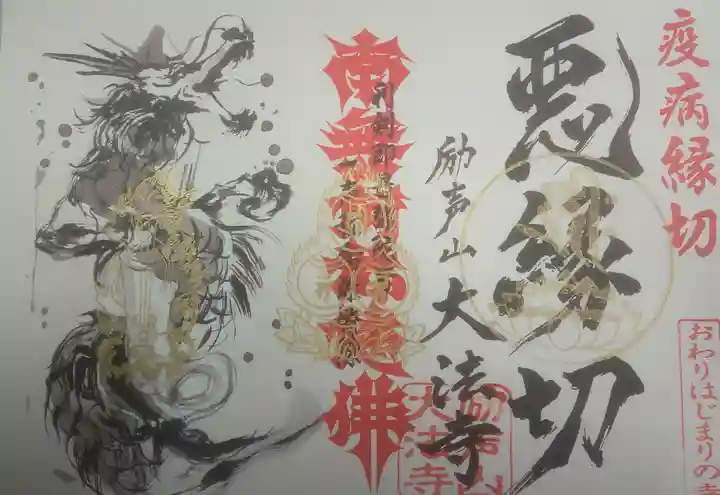 疫病縁切
悪縁切
励声山大法寺
南無阿弥陀佛
励声山
大法寺
おわりはじまりの寺